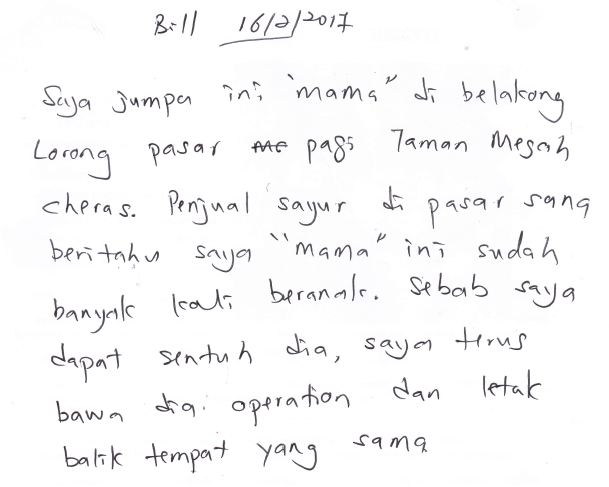 Bill 16/2/2017
Saya jumpa ini "mama" di belakong
Lorong pasar pagi Taman Megah
cheras. Penjual sayur di pasar sana
beritahu saya "mama" ini sudah
banyak kali beranak. Sebab saya
dapat sentuh dia, saya terus
bawa dia operation dan letak
balik tempat yang sama